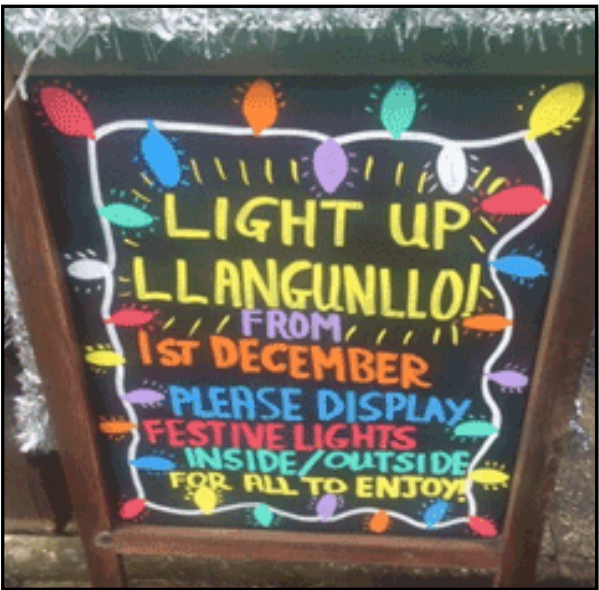 LIGHT UP
LLANGUNLLO!
FROM
1ST DECEMBER
PLEASE DISPLAY
FESTIVE LIGHTS
INSIDE/OUTSIDE
FOR ALL TO ENJOY!